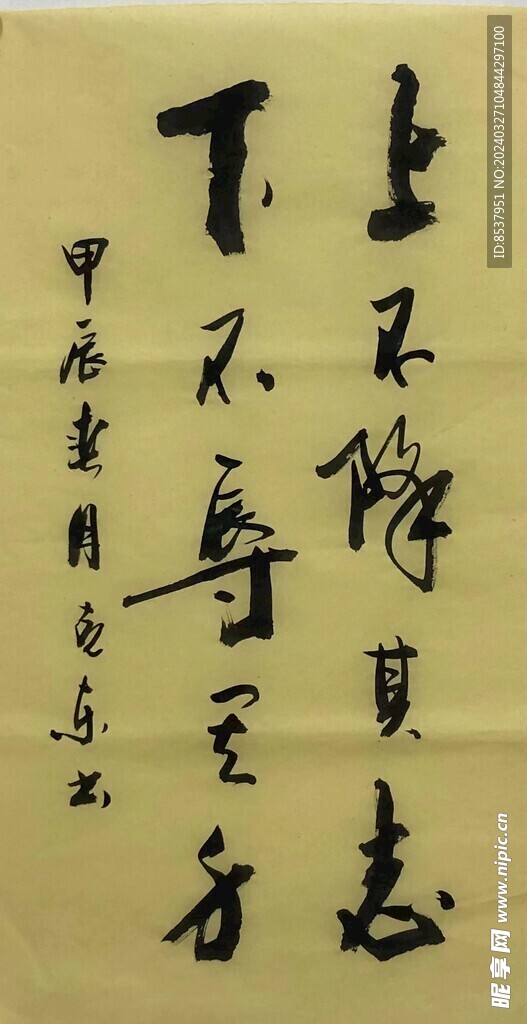 上不降其志
下不辱其身
甲辰春月克东书
ID:8537951 NO:20240327104844297100
昵享网 www.nipic.cn